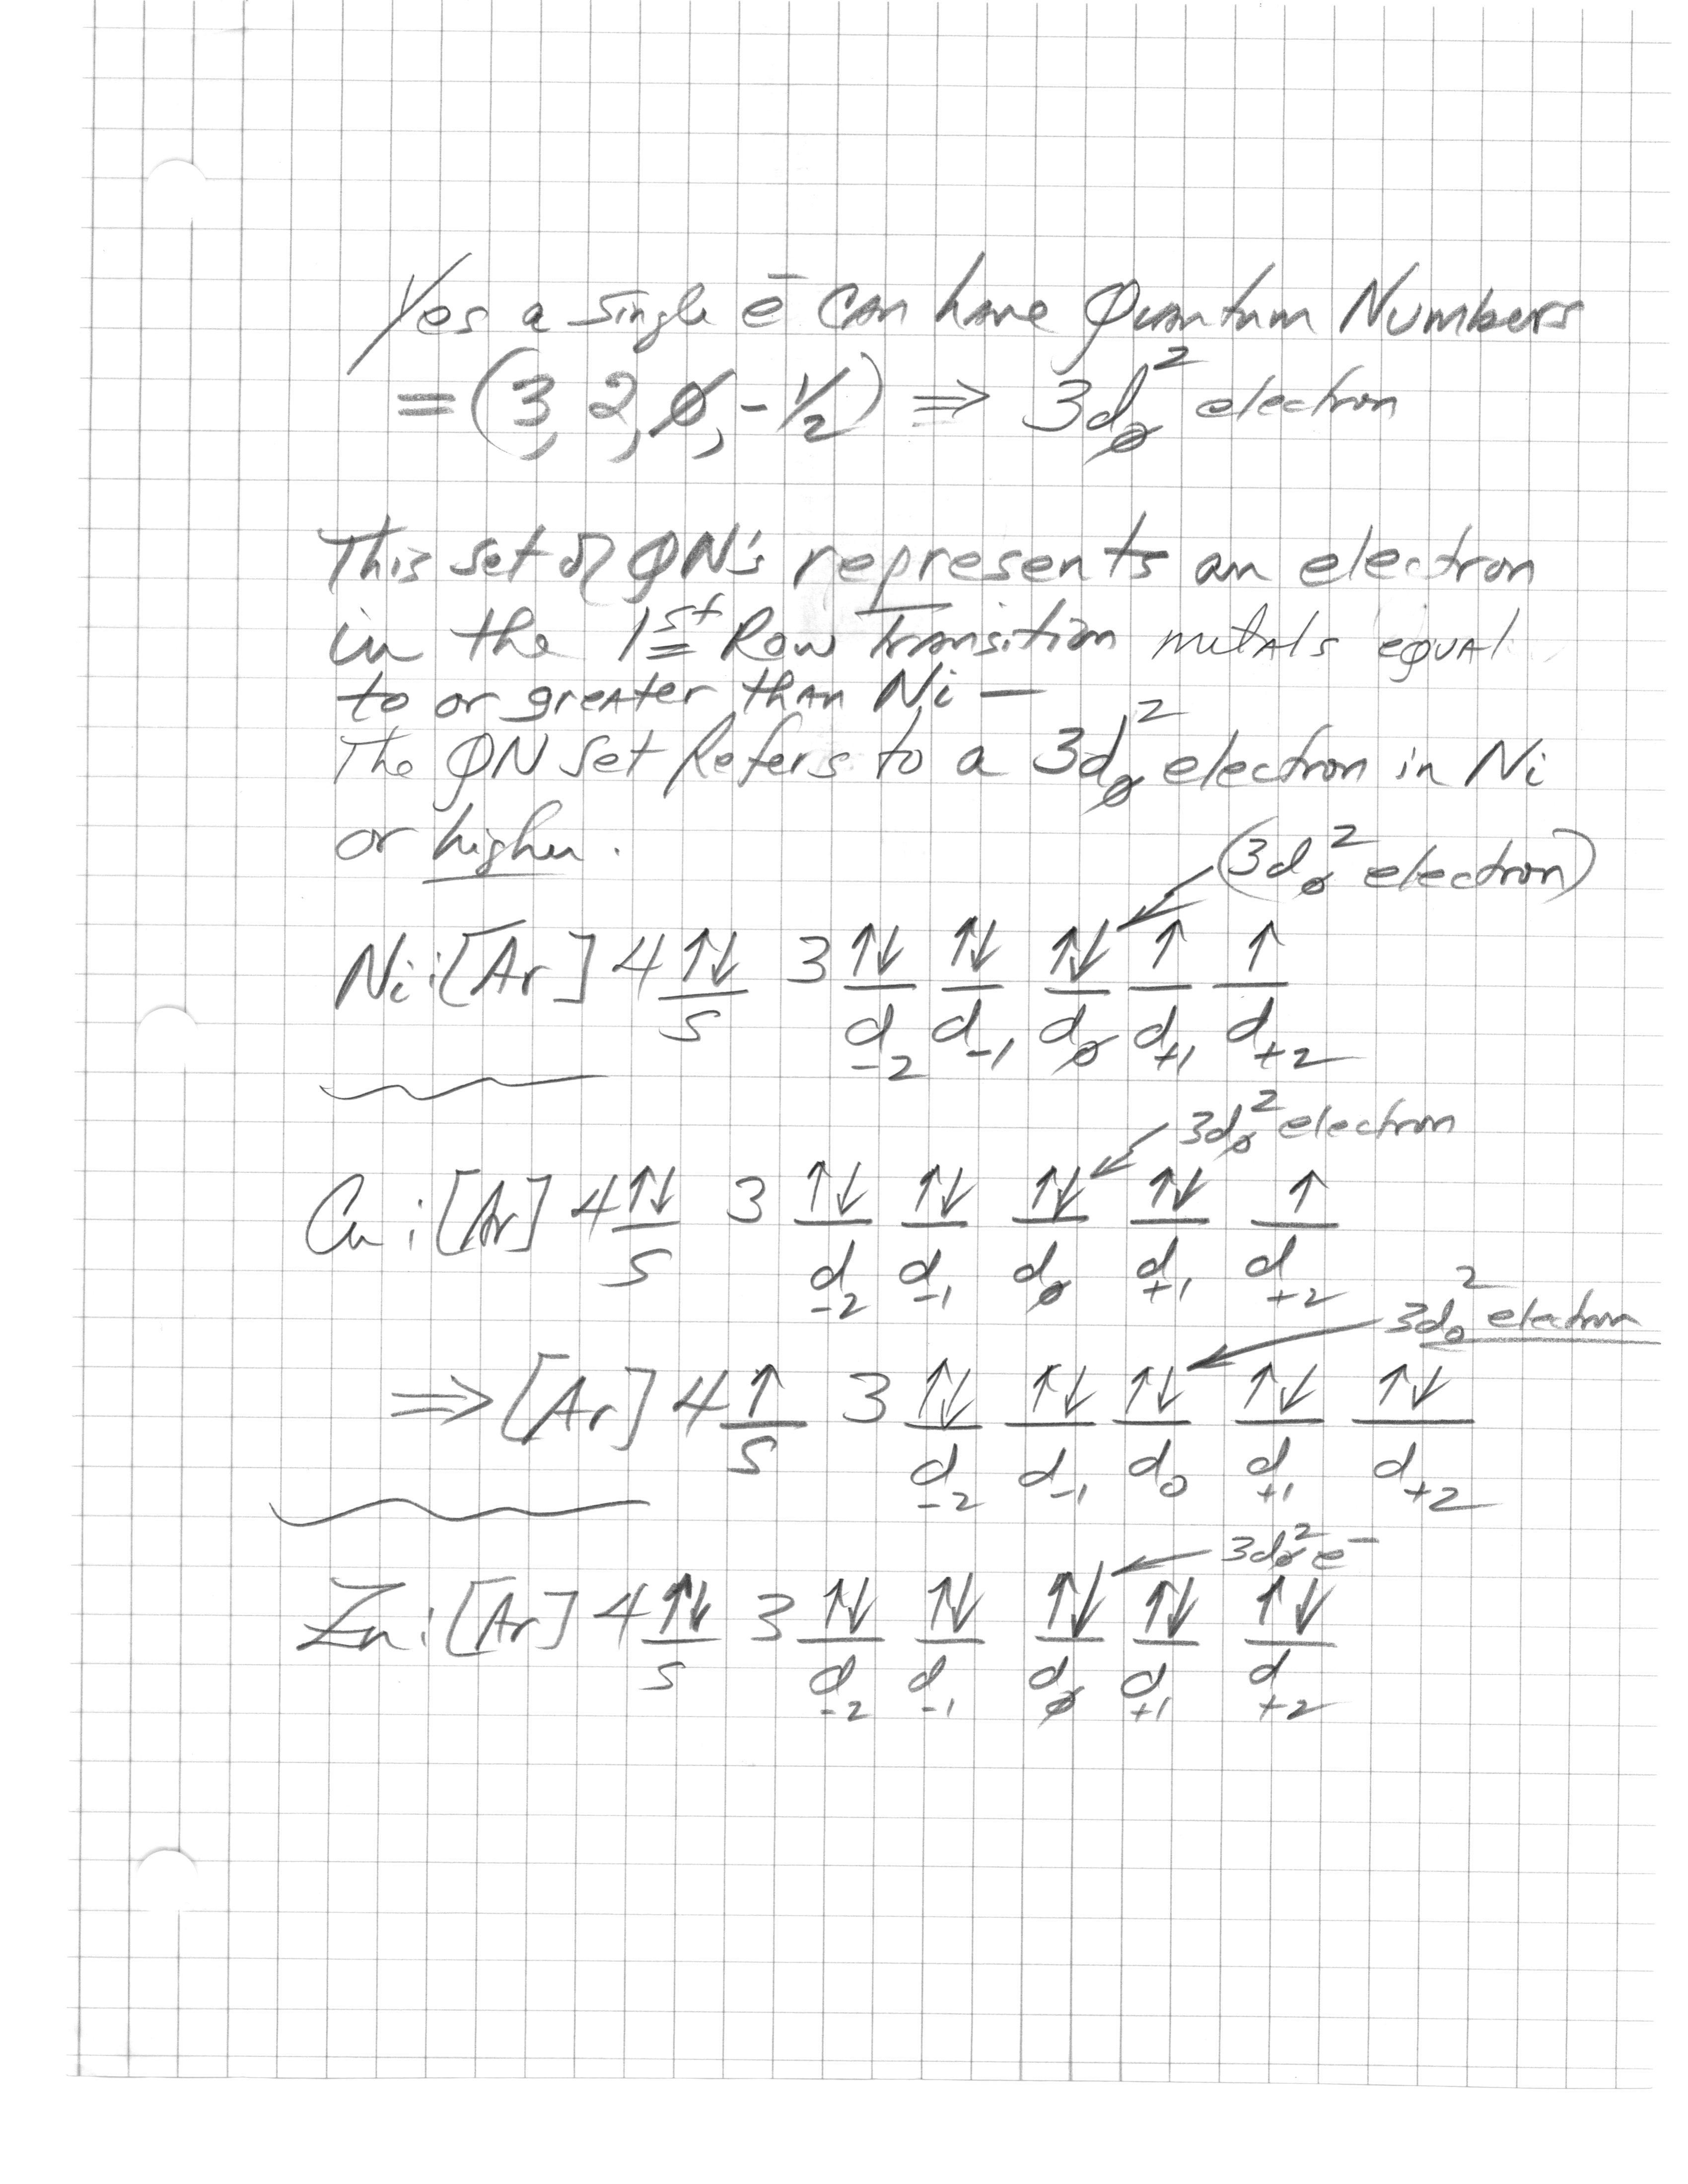 Yes a single e⁻ can have Quantum Numbers
= (3, 2, Ø, -1/2) ⇒ 3dØ² electron
This set of QN's represents an electron
in the 1st Row Transition metals equal
to or greater than Ni —
The QN set Refers to a 3dØ² electron in Ni
or higher.
(3dØ² electron)
Ni: [Ar] 4 ↑↓ 3 ↑↓ ↑↓ ↑↓ ↑ ↑
s d-2 d-1 dØ d+1 d+2
3dØ² electron
Cu: [Ar] 4 ↑↓ 3 ↑↓ ↑↓ ↑↓ ↑↓ ↑
s d-2 d-1 dØ d+1 d+2
3d0² electron
⇒ [Ar] 4 ↑ 3 ↑↓ ↑↓ ↑↓ ↑↓ ↑↓
s d-2 d-1 d0 d+1 d+2
3dØ² e⁻
Zn: [Ar] 4 ↑↓ 3 ↑↓ ↑↓ ↑↓ ↑↓ ↑↓
s d-2 d-1 dØ d+1 d+2